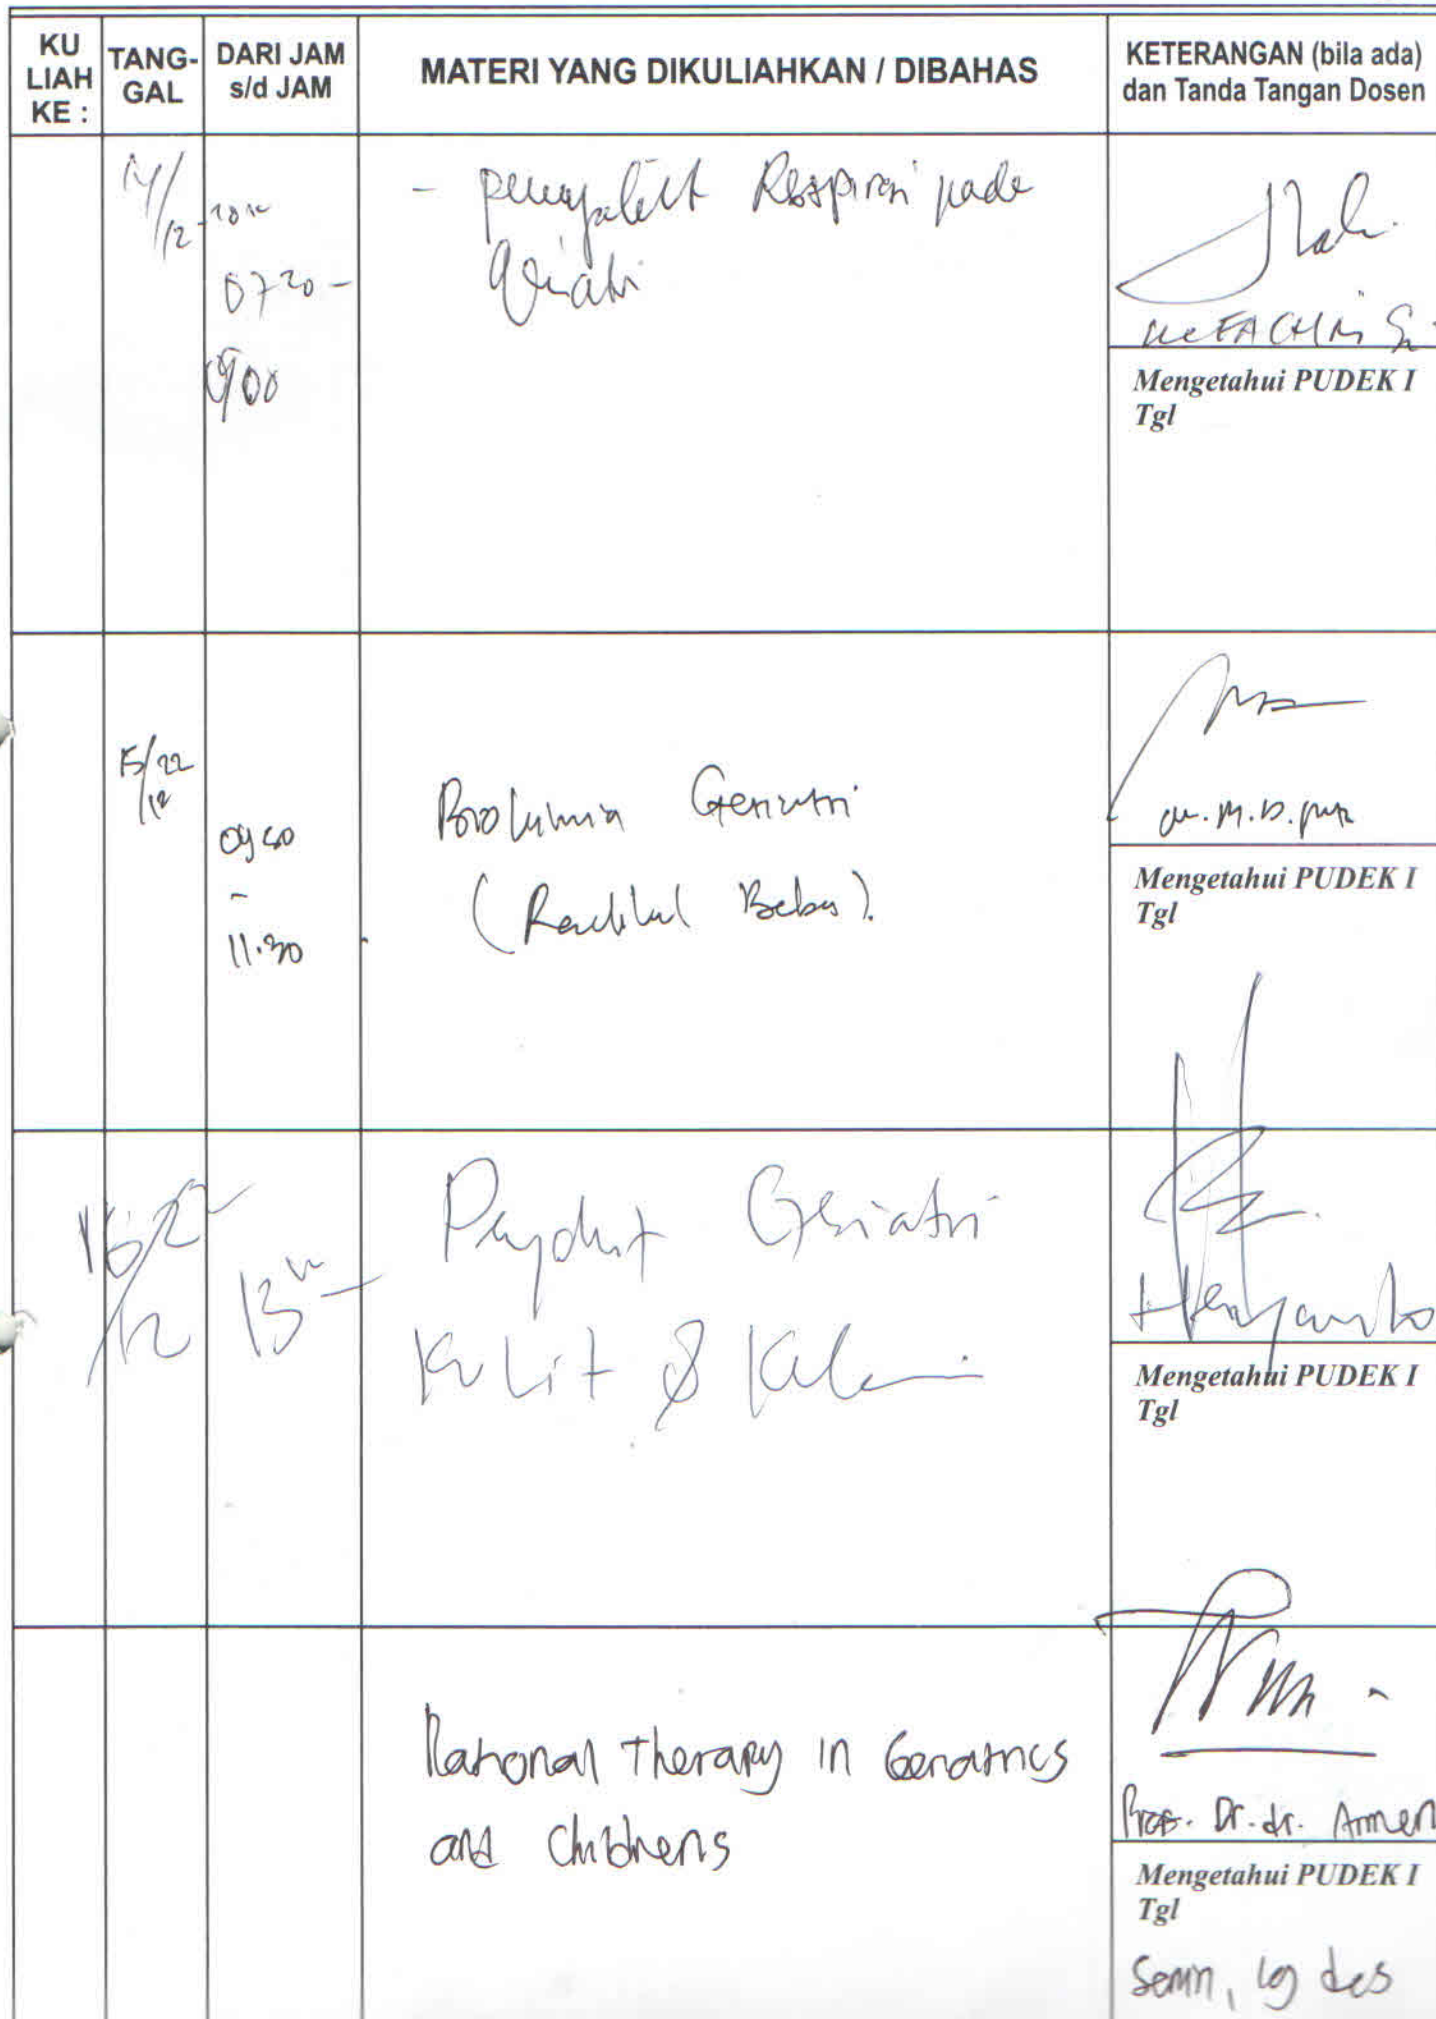 KU LIAH KE :
TANG- GAL
DARI JAM s/d JAM
MATERI YANG DIKULIAHKAN / DIBAHAS
KETERANGAN (bila ada) dan Tanda Tangan Dosen
14/12
0720 -
0900
- penyakit Respirasi pada
Geriatri
Mengetahui PUDEK I
Tgl
15/22
12
0940
-
11.30
Biokimia Geriatri
(Radikal Bebas).
Mengetahui PUDEK I
Tgl
16/12
Penyakit Geriatri
Kulit & Kelamin
Heryanto
Mengetahui PUDEK I
Tgl
Rational Therapy in Geriatrics
and Childrens
Prof. Dr. dr. Armen
Mengetahui PUDEK I
Tgl
Senin, 19 des